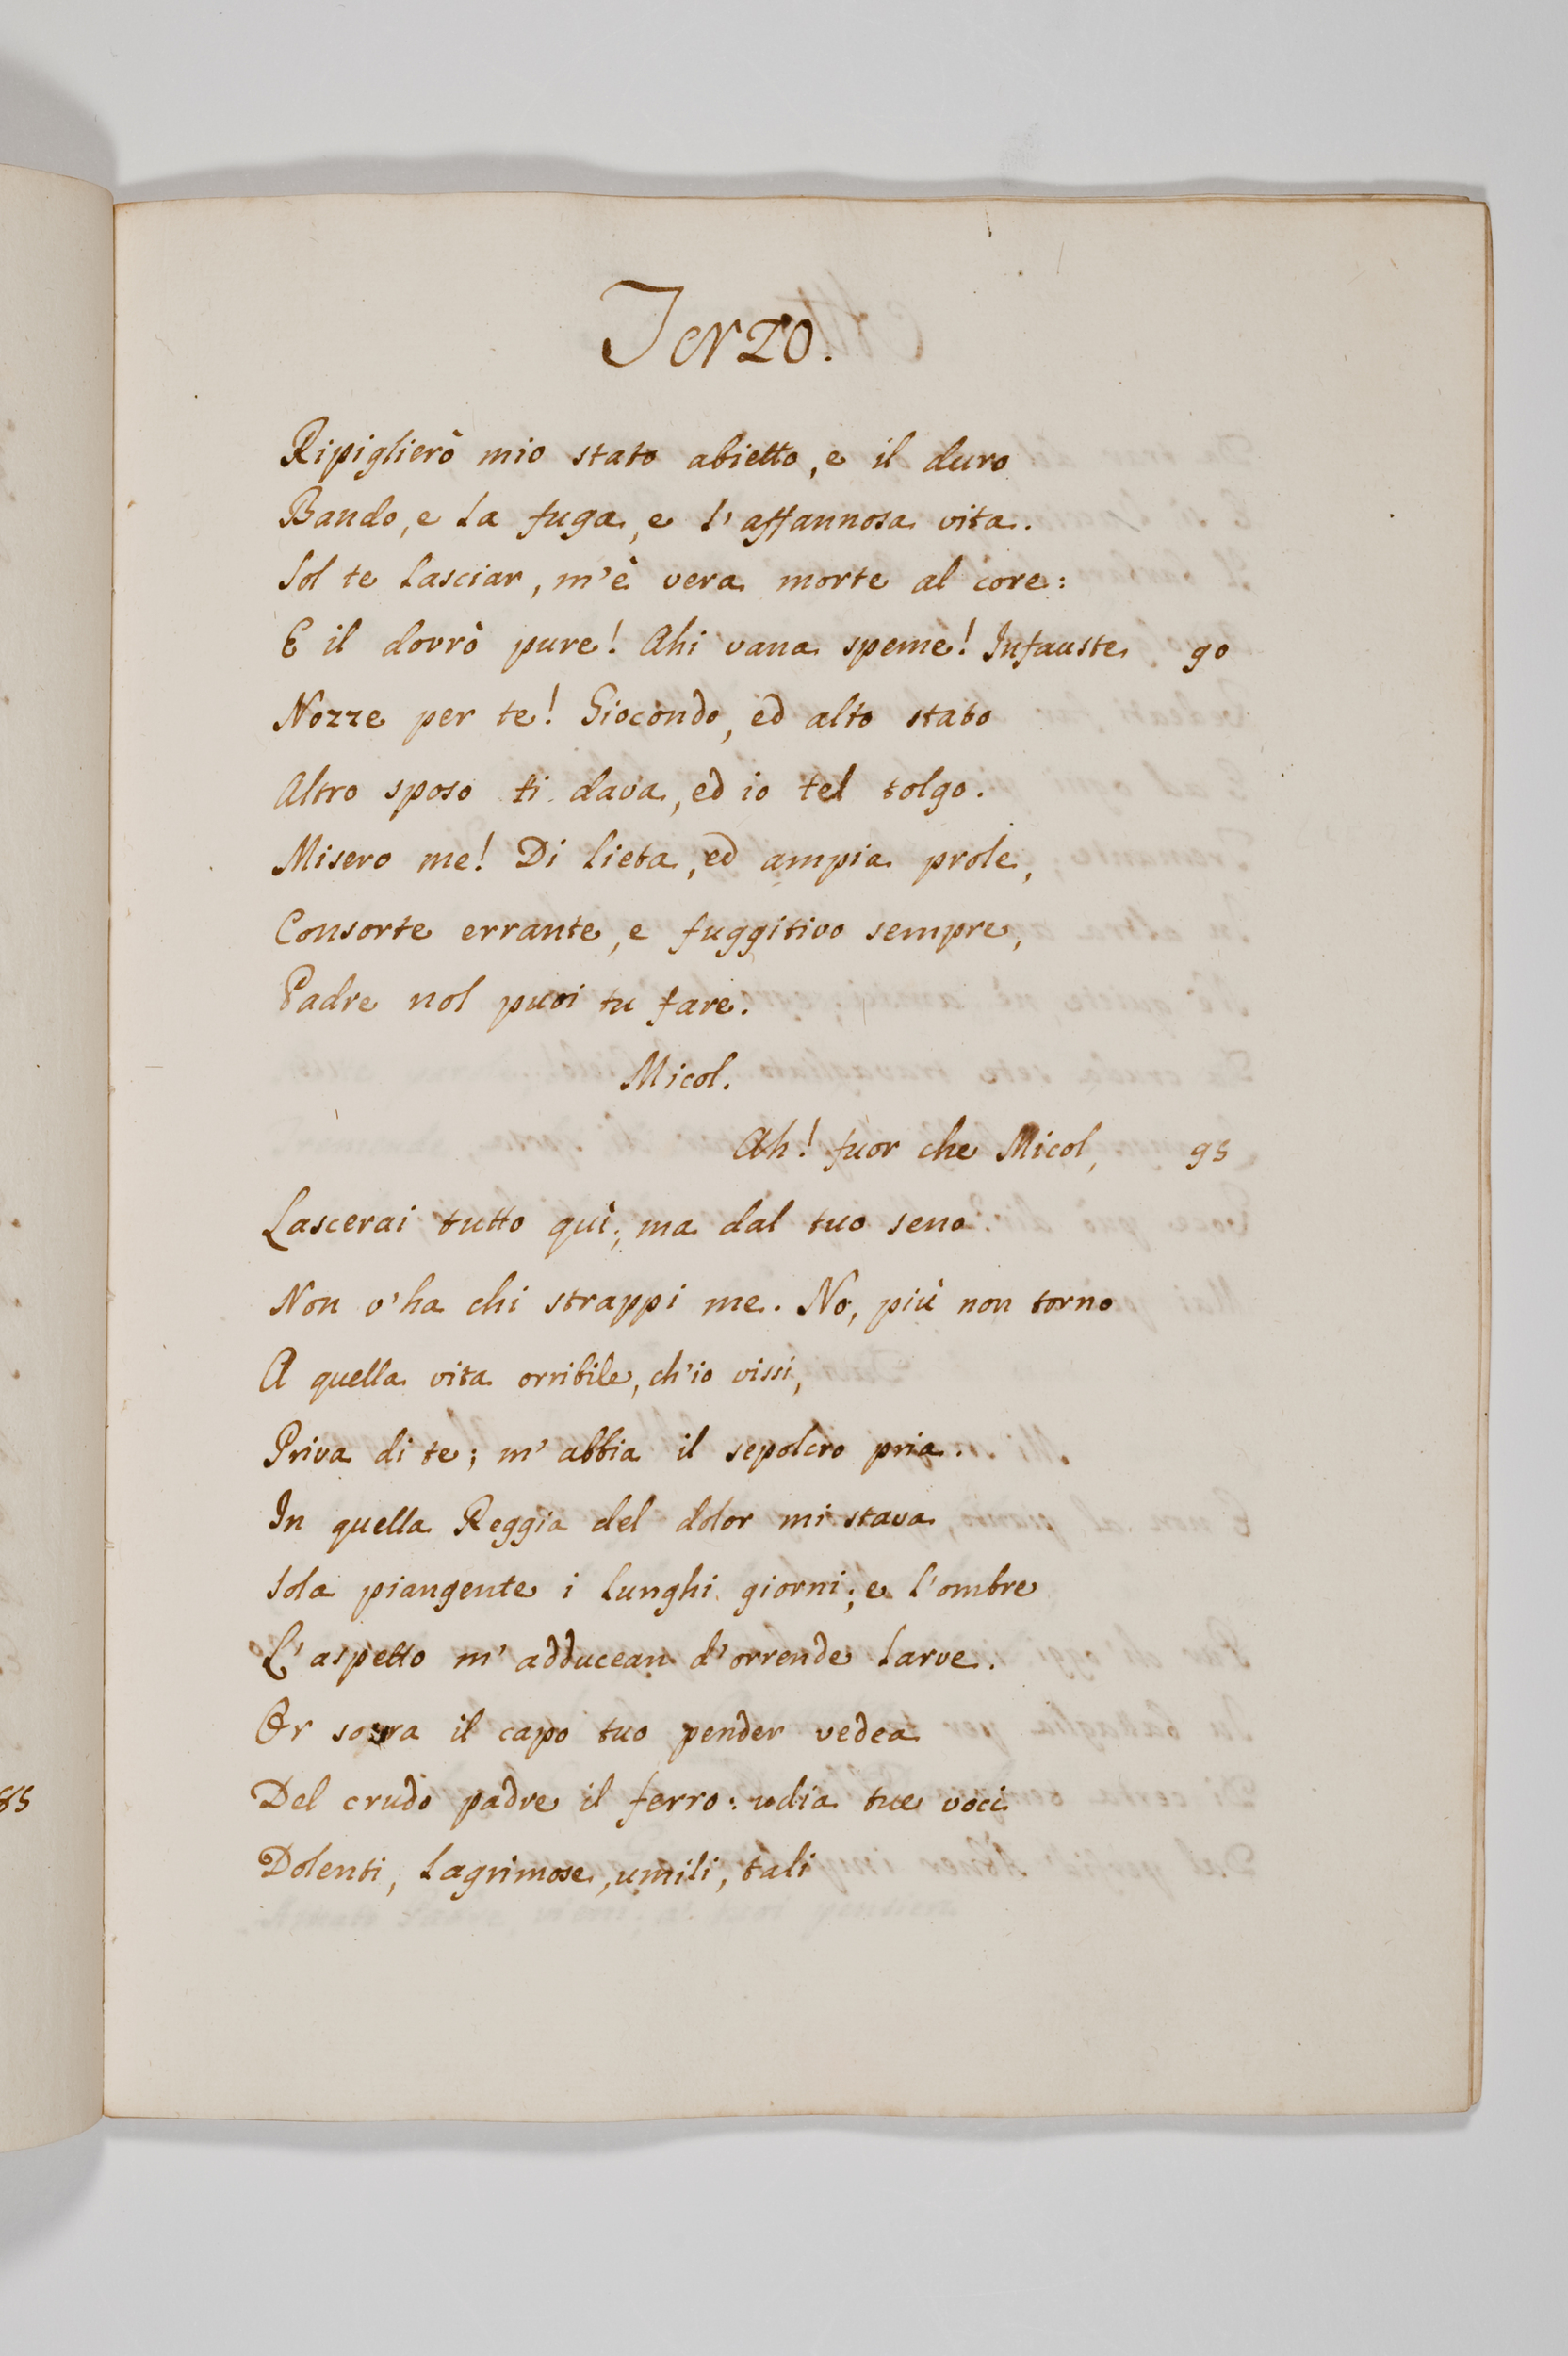 Terzo.
Ripiglierò mio stato abietto, e il duro
Bando, e la fuga, e l'affannosa vita.
Sol te lasciar, m'è vera morte al core:
E il dovrò pure! Ahi vana speme! Infauste 90
Nozze per te! Giocondo, ed alto stato
Altro sposo ti dava, ed io tel tolgo.
Misero me! Di lieta, ed ampia prole,
Consorte errante, e fuggitivo sempre,
Padre nol puoi tu fare.
Micol.
Ah! fuor che Micol, 95
Lascerai tutto quì; ma dal tuo seno
Non v'ha chi strappi me. No, più non torno
A quella vita orribile, ch'io vissi,
Priva di te; m'abbia il sepolcro pria.
In quella Reggia del dolor mi stava
Sola piangente i lunghi giorni; e l'ombre
L'aspetto m'adducean d'orrende larve.
Or sovra il capo tuo pender vedea
Del crudo padre il ferro: udia tue voci
Dolenti, lagrimose, umili, tali
85